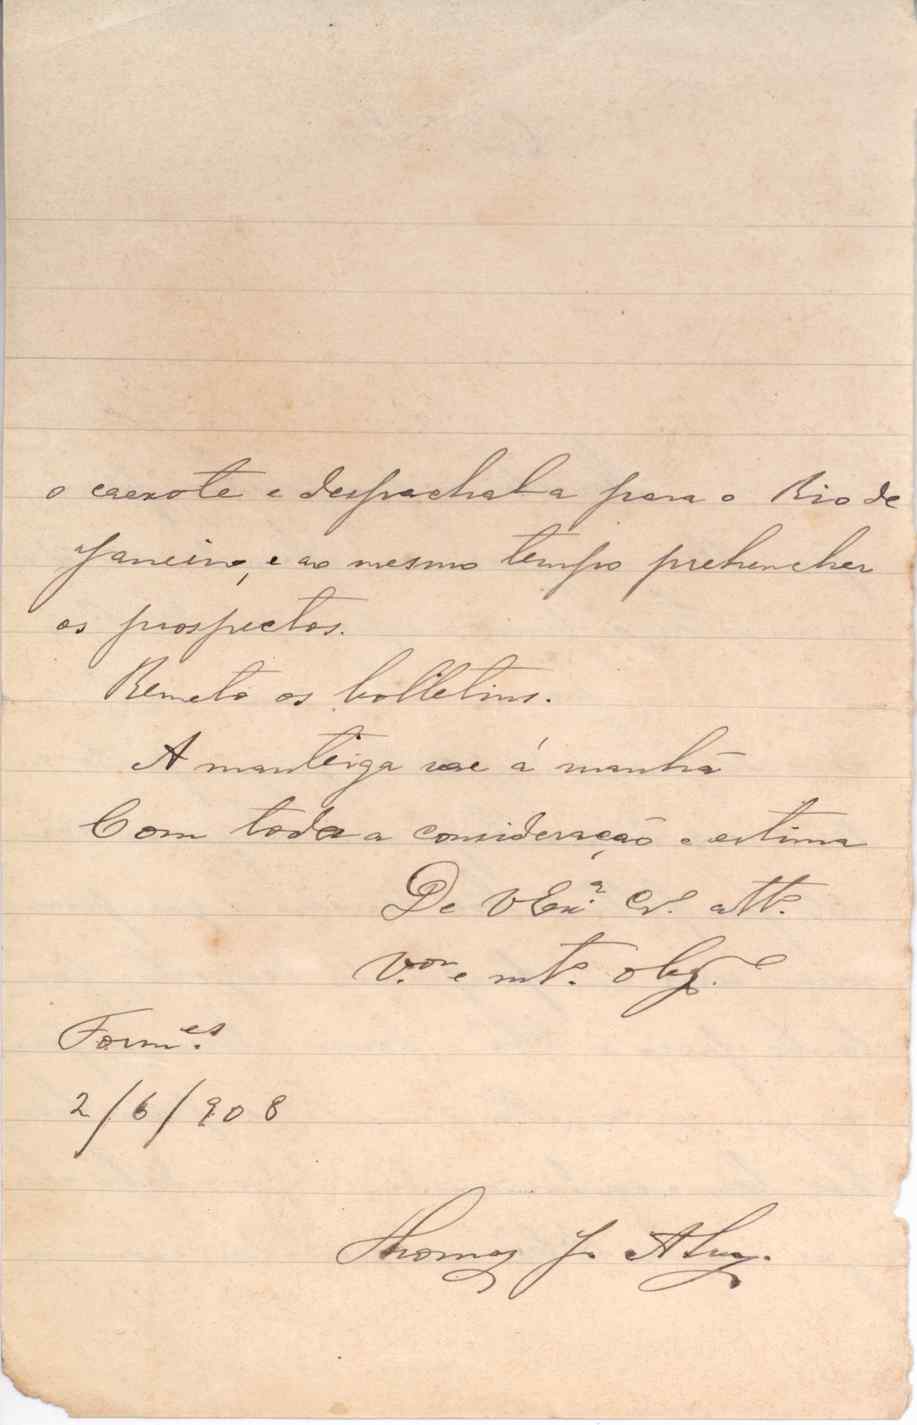 o caexote e despachal-a para o Rio de
Janeiro, e ao mesmo tempo prehencher
os prospectos.
Remeto os bolletins.
A manteiga vae á manhã
Com toda a consideração e estima
De V Ex.ª Cr.º att.º
V.or e mt.º obg.º
Form.es
2/6/908
Thomaz J.